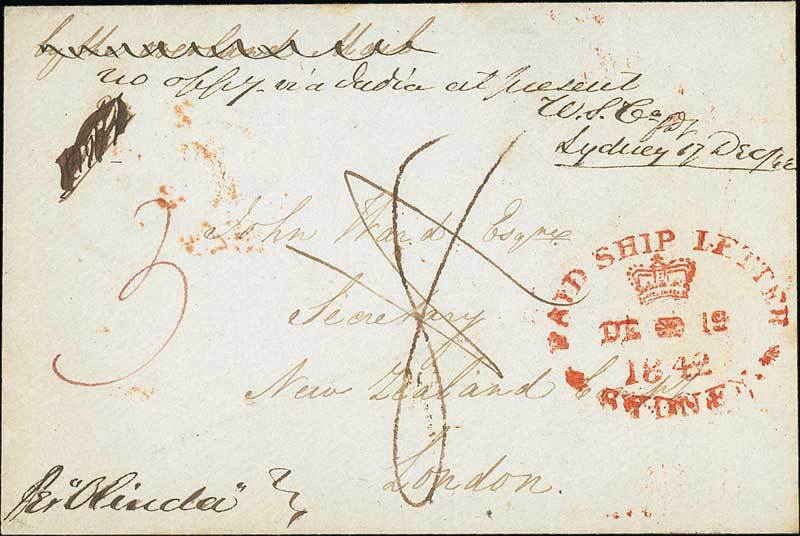 by the overland Mail
no oppy via India at present
W.S.
Sydney 17 Dec/42
3
8
John Ward Esqre
Secretary
New Zealand Compy
London.
PAID SHIP LETTER
DE 19
1842
SYDNEY
per "Olinda"